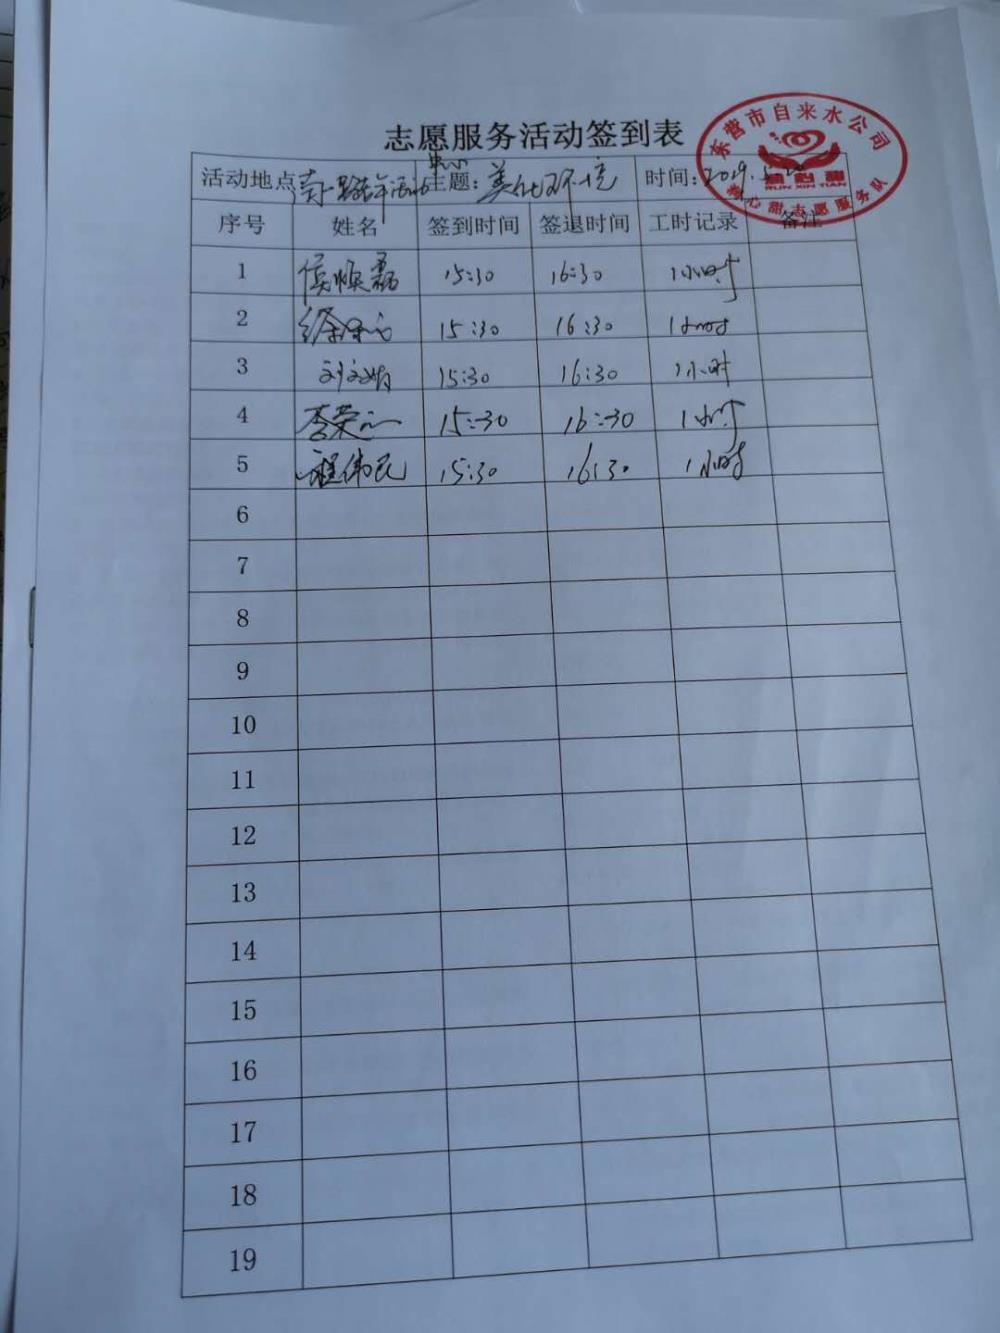 志愿服务活动签到表
东营市自来水公司
RUN XIN TIAN
润心甜志愿服务队
活动地点 青年活动中心 主题：美化环境 时间：2019.5.
序号 姓名 签到时间 签退时间 工时记录 备注
1 侯焕磊 15:30 16:30 1小时
2 徐 15:30 16:30 1小时
3 刘文娟 15:30 16:30 1小时
4 李荣 15:30 16:30 1小时
5 程伟民 15:30 16:30 1小时
6
7
8
9
10
11
12
13
14
15
16
17
18
19